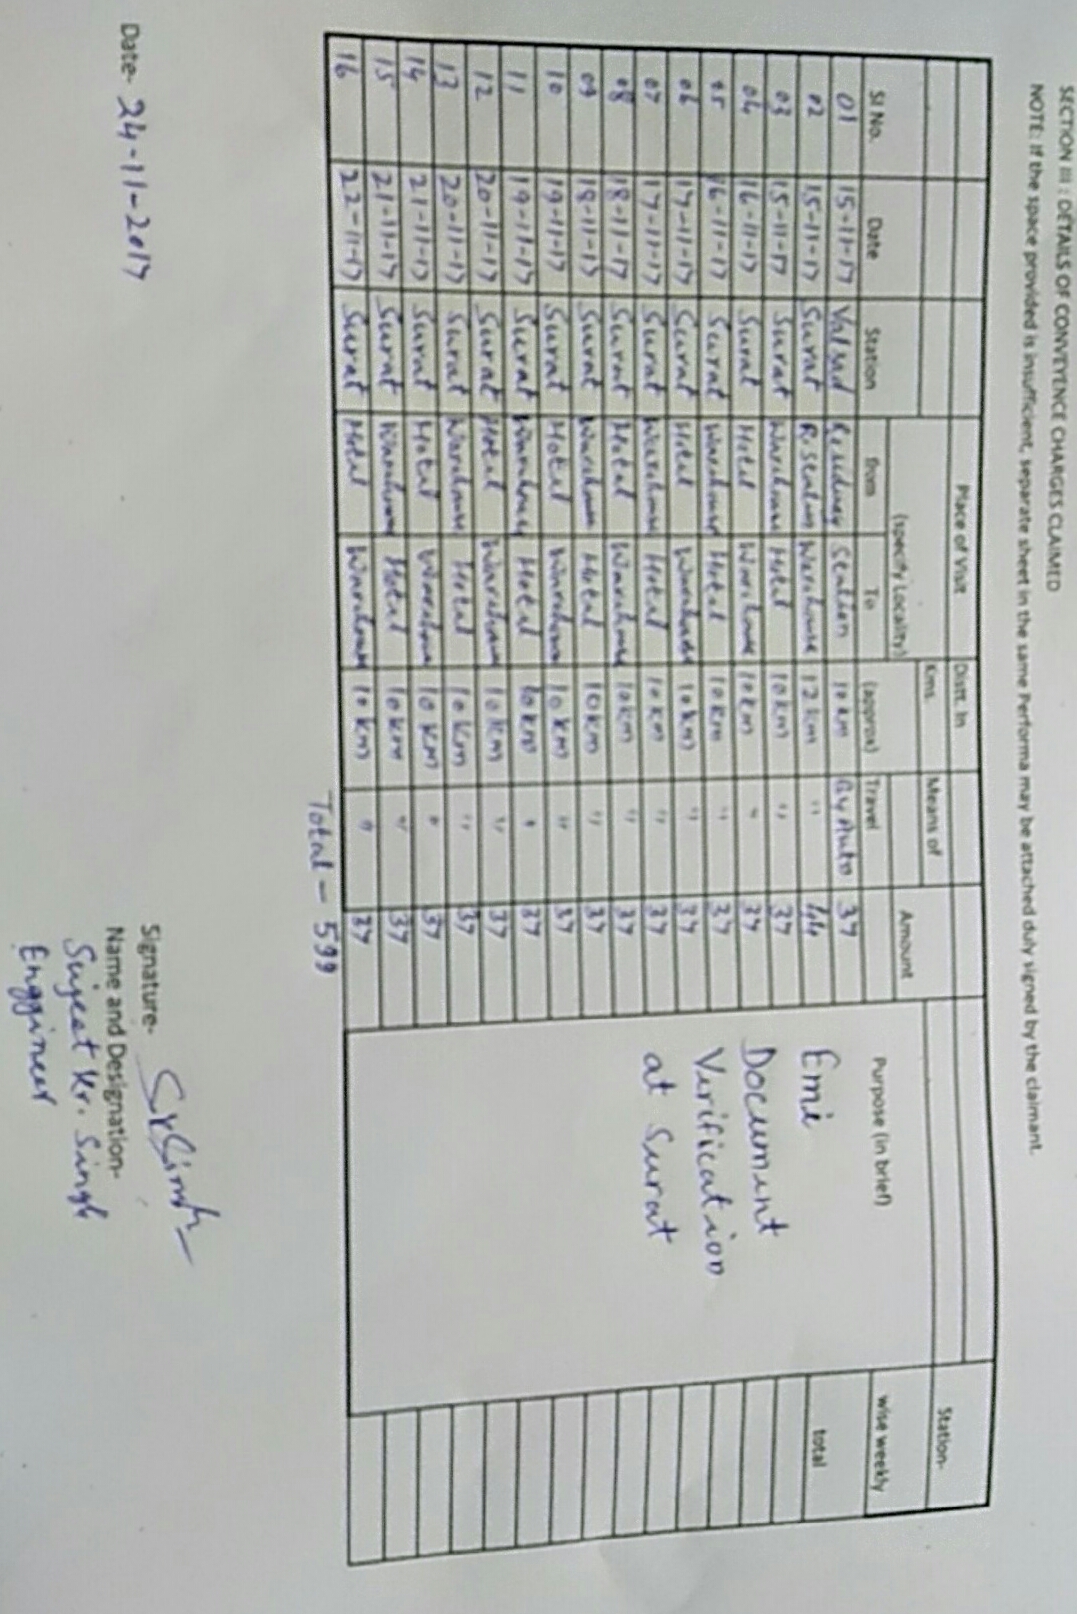 SECTION III : DETAILS OF CONVEYENCE CHARGES CLAIMED
NOTE: If the space provided is insufficient, separate sheet in the same Performa may be attached duly signed by the claimant.
Place of Visit Distt. In Means of Station-
(specify Locality) Kms. Amount
Sl No. Date Station from To (approx) Travel Purpose (in brief) wise weekly
01 15-11-17 Valsad Residency Station 10 km By Auto 37
02 15-11-17 Surat Warehouse 12 km " 44 Emi total
03 15-11-17 Surat Warehouse Hotel 10 km " 37
04 16-11-17 Surat Hotel Warehouse 10km " 37 Document
05 16-11-17 Surat Warehouse Hotel 10km " 37 Verification
06 17-11-17 Surat Hotel Warehouse 10km " 37
07 17-11-17 Surat Warehouse Hotel 10km " 37 at Surat
08 18-11-17 Surat Hotel Warehouse 10km " 37
09 18-11-17 Surat Warehouse Hotel 10km " 37
10 19-11-17 Surat Hotel Warehouse 10km " 37
11 19-11-17 Surat Warehouse Hotel 10km " 37
12 20-11-17 Surat Hotel Warehouse 10km " 37
13 20-11-17 Surat Warehouse Hotel 10km " 37
14 21-11-17 Surat Hotel Warehouse 10km " 37
15 21-11-17 Surat Warehouse Hotel 10km " 37
16 22-11-17 Surat Hotel Warehouse 10km " 37
Total - 599
Date- 24-11-2017
Signature- SkSingh
Name and Designation-
Sujeet Kr. Singh
Enggineer